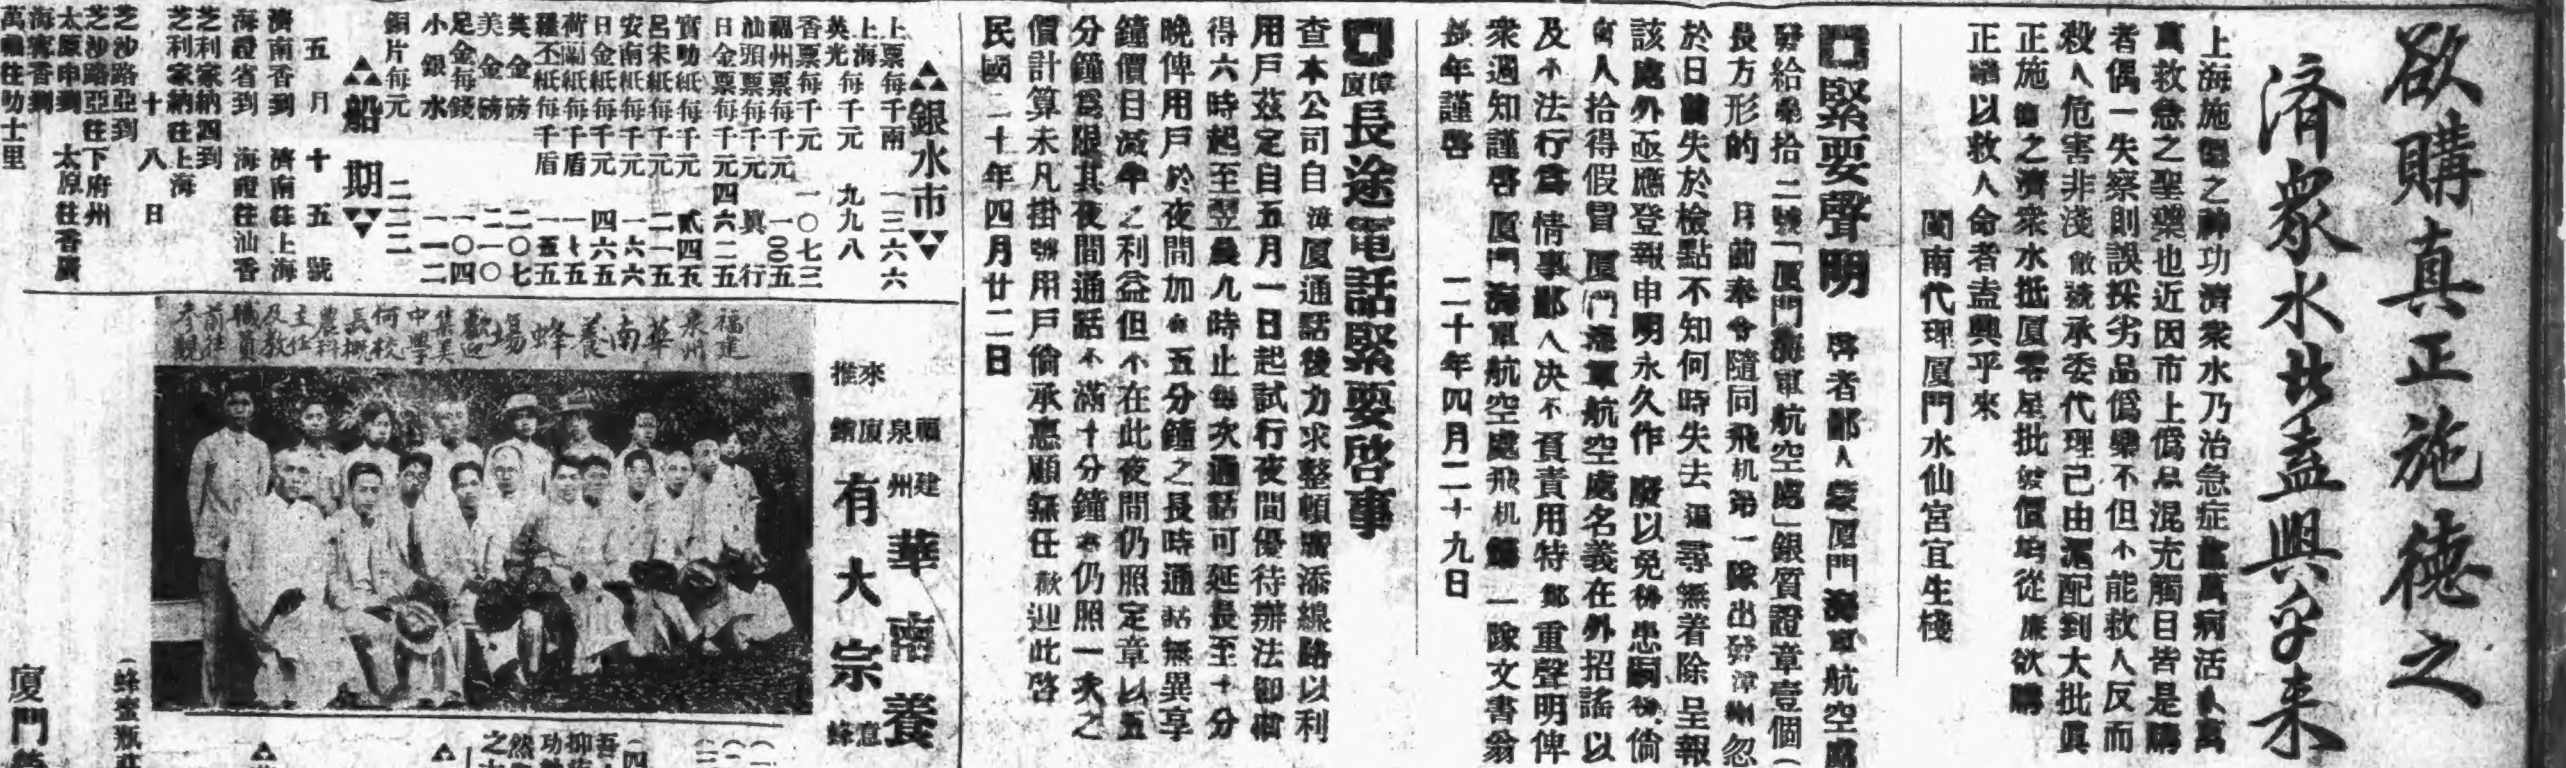 欲購真正施德之
済眾水此盍興乎来
上海施德之神功濟衆水乃治急症靈萬病活人萬
萬救急之聖藥也近因市上僞品混充觸目皆是購
者偶一失察則誤採劣品僞藥不但不能救人反而
殺人危害非淺敝號承委代理己由滬配到大批眞
正施德之濟衆水抵厦零星批發價均從廉欲購
正牌以救人命者盍興乎來
閩南代理厦門水仙宮宜生棧
緊要聲明
啓者鄙人蒙厦門海軍航空處
發給第拾二號「厦門海軍航空處」銀質證章壹個(
長方形的 月前奉令隨同飛机第一隊出發漳州忽
於日前失於檢點不知何時失去遍尋無着除呈報
該處外亟應登報申明永久作廢以免後患嗣後倘
有人拾得假冒厦門海軍航空處名義在外招謠以
及不法行爲情事鄙人决不負責用特鄭重聲明俾
衆週知謹啓 厦門海軍航空處飛机第一隊文書翁
年謹啓 二十年四月二十九日
漳厦長途電話緊要啓事
查本公司自漳厦通話後力求整頓廣添線路以利
用戶茲定自五月一日起試行夜間優待辦法卽省
得六時起至翌晨九時止每次通話可延長至十分
晩俾用戶於夜間加五分鐘之長時通話無異享
鐘價目減半之利益但不在此夜間仍照定章以五
分鐘爲限其夜間通話不滿十分鐘者仍照一次之
價計算未凡掛號用戶倘承惠顧無任歡迎此啓
民國二十年四月廿二日
銀水市
上票每千兩 一三六六
上海
英光每千元 九九八
香票每千元 一〇七三
福州票每千元 一〇〇五
汕頭票每千元 眞行
日金票每千元 四六二五
實叻紙每元 貳四五
呂宋紙每元 二一五
安南紙每元 一六六
日金紙每千元 四六五
荷蘭紙每千盾 一七五
羅丕紙每千盾 一五五
英金磅 二〇七
美金磅 二一〇
足金每錢 一〇四
小銀水 一一二
銅片每元 二二二
船期
五月十五號
濟南香到 濟南往上海
海證省到 海證往汕香
芝利家納四到
芝利家納往上海
十八日
芝沙路亞到
芝沙路亞往下府州
太原申到 太原往香廣
海寗香到
萬福往叻士里
福建泉州華南養蜂場歡迎集美中學何校長概農科主任及教職員前往參觀
來推
福建泉州
厦銷
華南養
有大宗
意蜂
(蜂蜜瓶
厦門